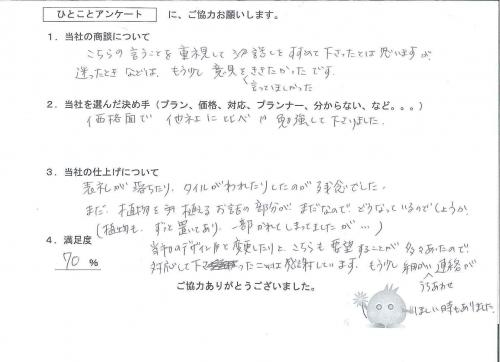 ひとことアンケート に、ご協力お願いします。
1．当社の商談について
こちらの言うことを重視してお話しをすすめて下さったとは思いますが、
迷ったときなどは、もう少し意見をききたかったです。
言ってほしかった
2．当社を選んだ決め手（プラン、価格、対応、プランナー、分からない、など。。。）
価格面で 他社に比べ 勉強して下さりました。
3．当社の仕上げについて
表札が落ちたり、タイルがわれたりしたのが残念でした。
まだ、植物を植えるお話の部分がまだなので、どうなっているのでしょうか
（植物も、ずっと置いてあり、一部かれてしまってましたが…）
4．満足度
70 %
当初のデザインより変更したりと、こちらも要望することが多々あったので、
対応して下さったことには感謝しています。もう少し細かい連絡が
うちあわせ
ほしい時もありました。
ご協力ありがとうございました。